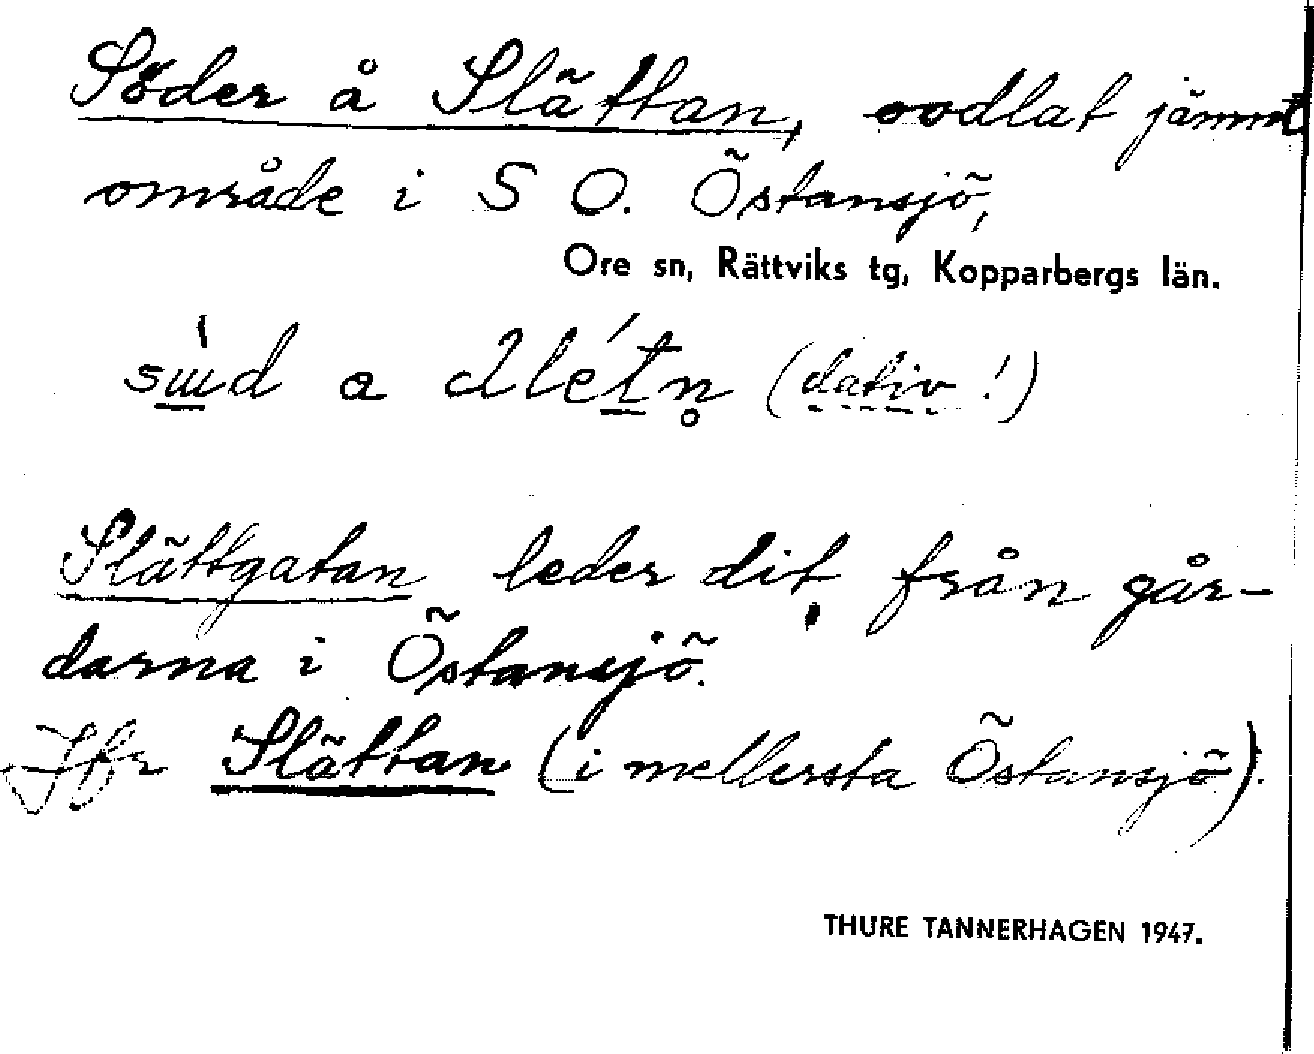 Söder å Slättan, oodlat jämnt
område i S O. Östansjö,
Ore sn, Rättviks tg, Kopparbergs län.
a (dativ!)
Slättgatan leder dit från går-
darna i Östansjö.
Jfr Slättan (i mellersta Östansjö).
THURE TANNERHAGEN 1947.